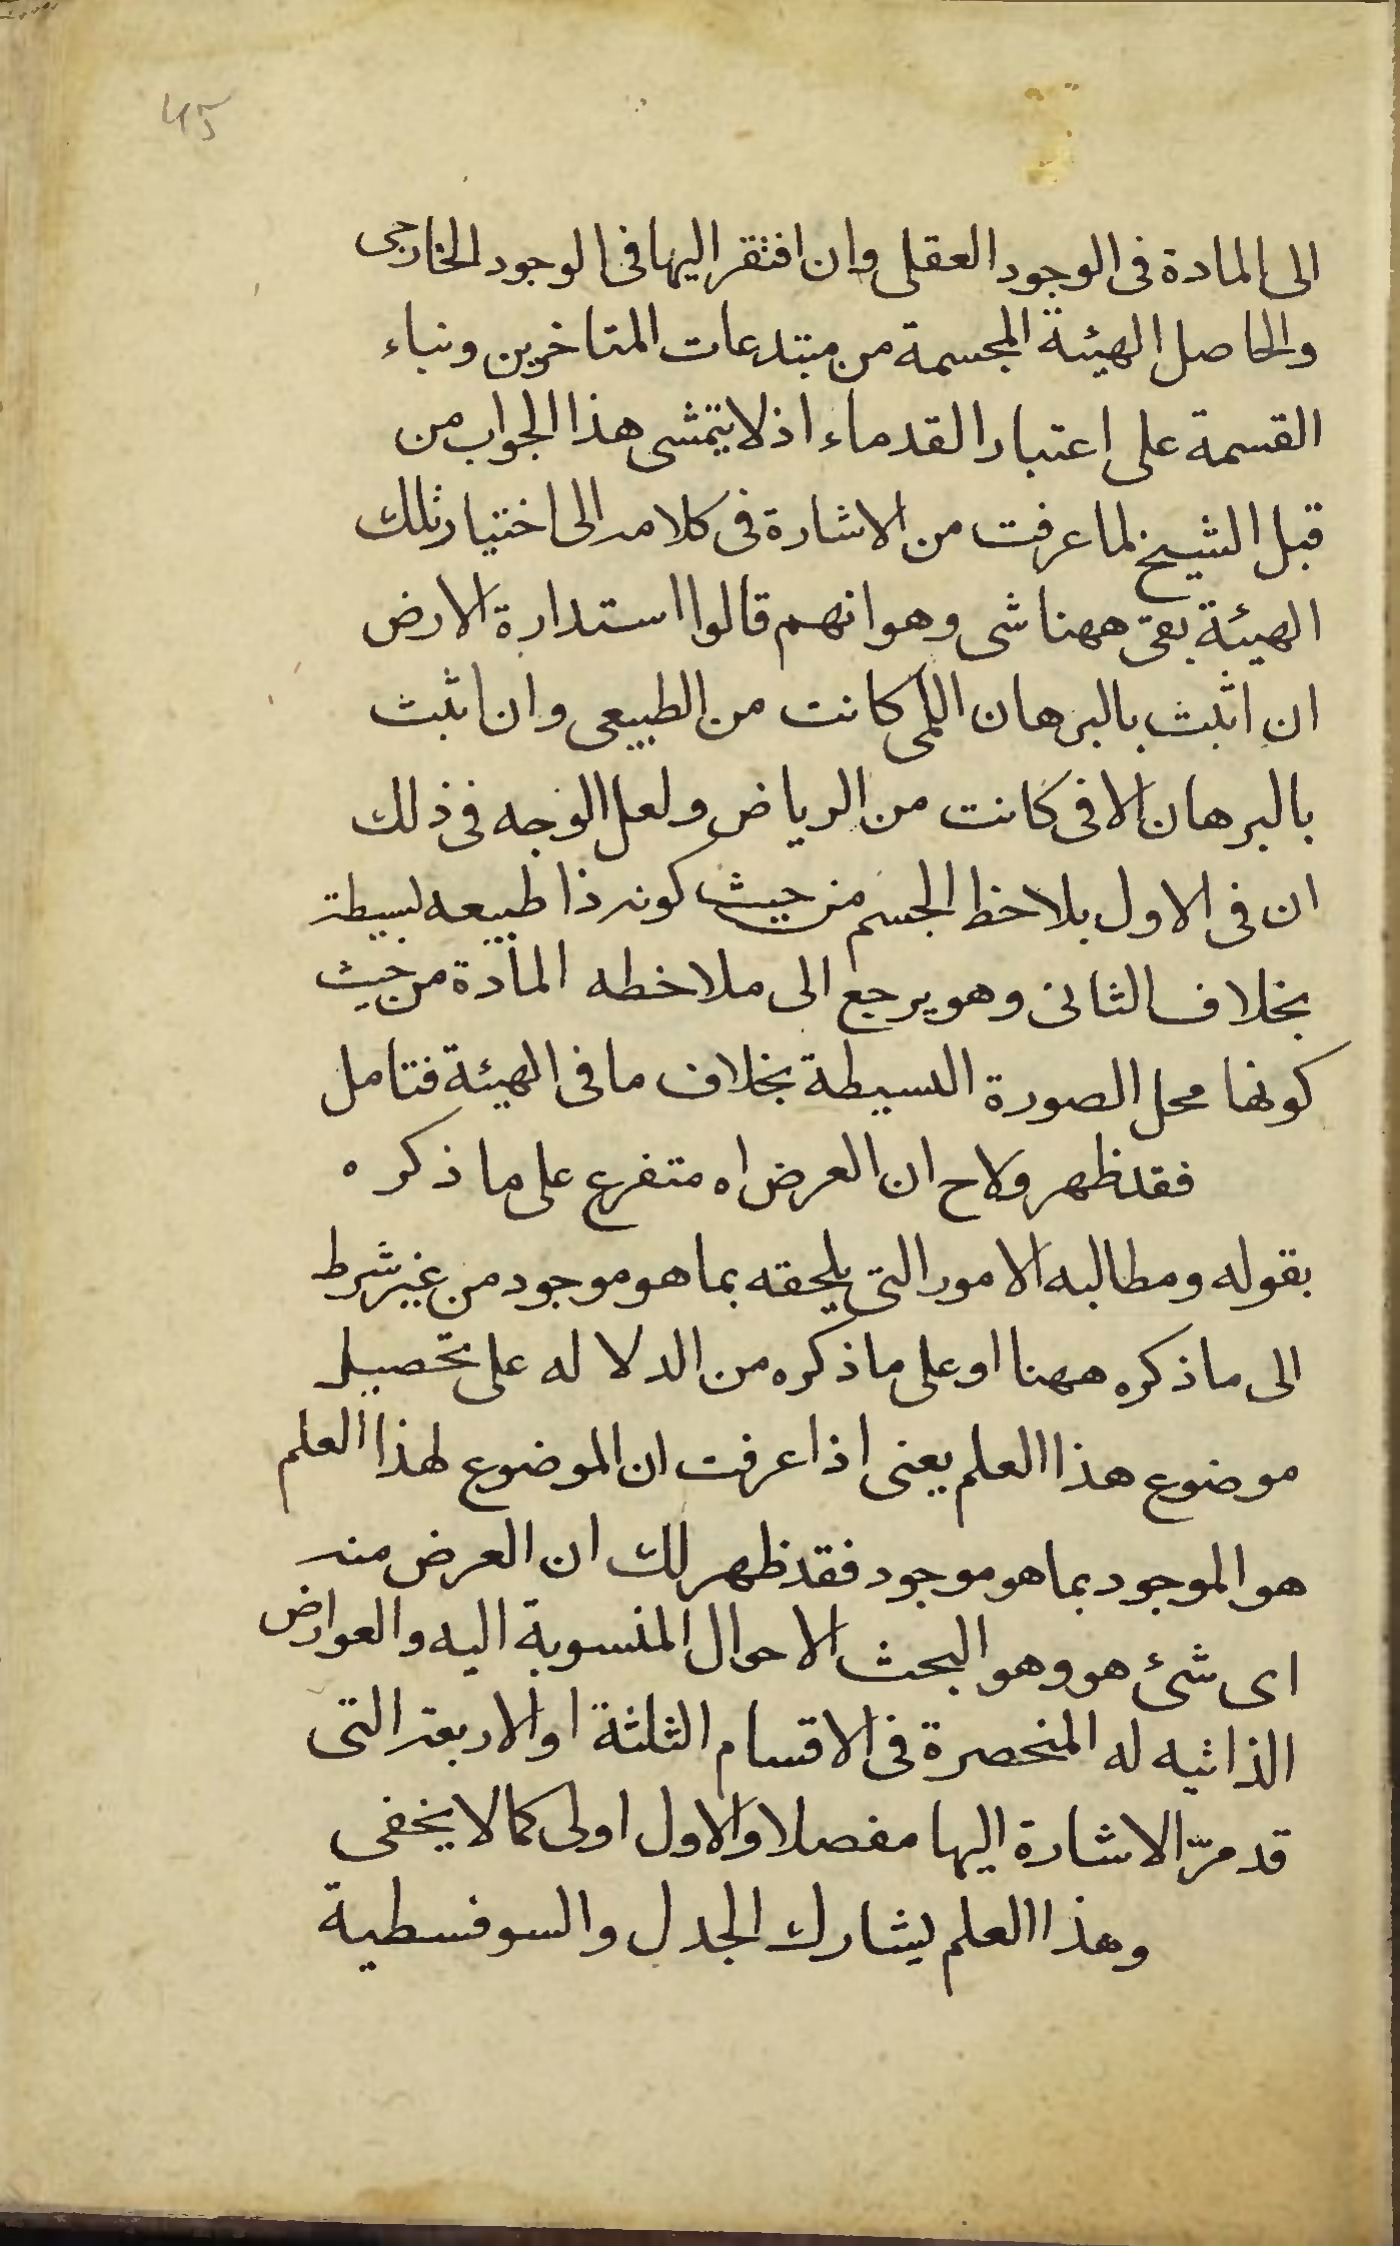 45
الى المادة فى الوجود العقلى وان افتقر اليها فى الوجود الخارجى
والحاصل الهيئة المجسمة من مبتدعات المتاخرين وبناء
القسمة على اعتبار القدماء اذ لا يتمشى هذا الجواب من
قبل الشيخ لما عرفت من الاشارة فى كلامه الى اختيار تلك
الهيئة بقى ههنا شى وهو انهم قالوا استدارة الارض
ان اثبت بالبرهان اللمى كانت من الطبيعى وان اثبت
بالبرهان الافى كانت من الرياض ولعل الوجه فى ذلك
ان فى الاول يلاحظ الجسم من حيث كونه ذا طبيعه بسيطة
بخلاف الثانى وهو يرجع الى ملاحظه المادة من حيث
كونها محل الصورة البسيطة بخلاف ما فى الهيئة فتامل
فقد ظهر ولاح ان العرض اه متفرع على ما ذكره
بقوله ومطالبه الامور التى يلحقه بما هو موجود من غير شرط
الى ما ذكره ههنا او على ما ذكره من الدلاله على تحصيل
موضوع هذا العلم يعنى اذا عرفت ان الموضوع لهذا العلم
هو الموجود بما هو موجود فقد ظهر لك ان العرض منه
اى شئ هو وهو البحث الاحوال المنسوبة اليه والعوارض
الذاتيه له المنحصرة فى الاقسام الثلثة او الاربعة التى
قد مرّ الاشارة اليها مفصلا والاول اولى كما لا يخفى
وهذا العلم يشارك الجدل والسوفسطية